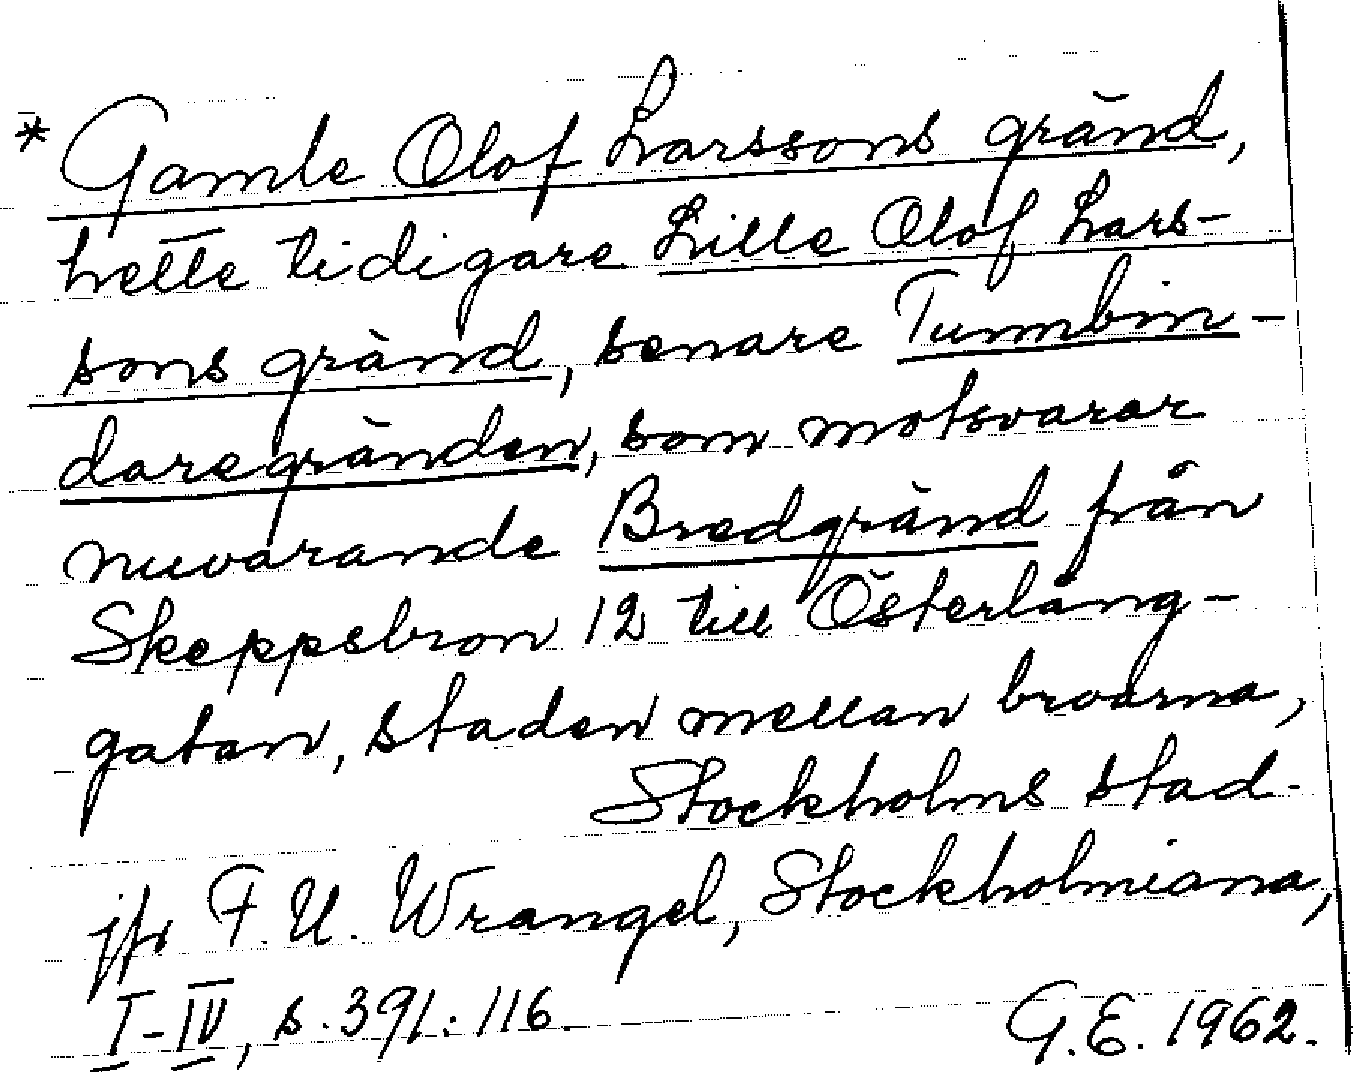 * Gamle Olof Larssons gränd,
hette tidigare Lille Olof Lars-
sons gränd, senare Tunnbin-
daregränden, som motsvarar
nuvarande Bredgränd från
Skeppsbron 12 till Österlång-
gatan, staden mellan broarna,
Stockholms stad.
jfr F. U. Wrangel, Stockholmiana,
I-IV, s. 391: 116.
G.E. 1962.